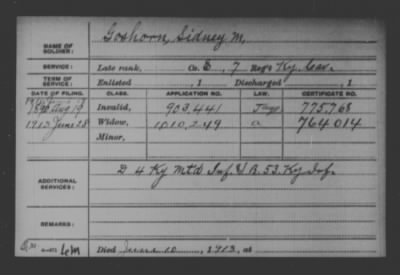 NAME OF SOLDIER: Goshorn, Sidney M,
SERVICE: Late rank, Co. E, 7 Reg't Ky. Cav.
TERM OF SERVICE: Enlisted , 1 Discharged , 1
DATE OF FILING. CLASS. APPLICATION NO. LAW. CERTIFICATE NO.
Aug 19 Invalid, 903,441 775,768
1913 June 28 Widow, 1010,249 a 764014
Minor,
ADDITIONAL SERVICES: D 4 Ky Mtd Inf. & B. 53. Ky Inf.
REMARKS:
Died June 10, 1913, at